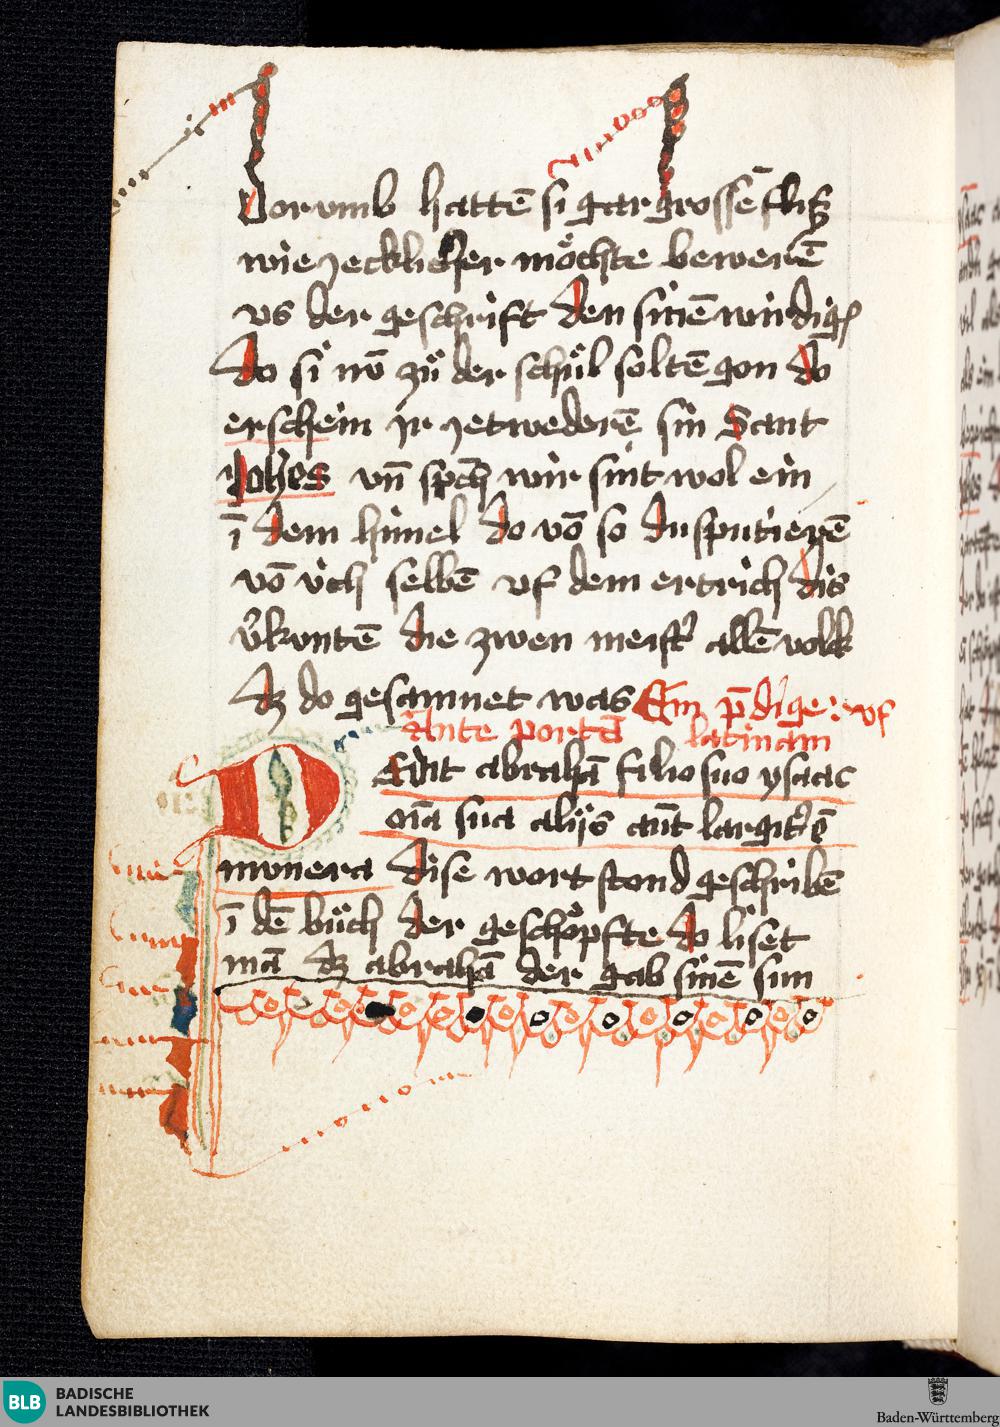 Dorumb hattē si gar grossē fliſʒ
wie yecklicher mo̊chte bewerē
us der geschrift den sinē wirdigē
do si nō zů der schůl soltē gon do
erschein ir yetwederē sin Sant
Johēs vn̄ sp̄ch wir sint wol ein
ī dem himel do vō so dusputierē
vō v́ch selbē vf dem ertrich dis
v̓kuntē die zwen meist̓ allē volk
dʒ do gesamnet was Ein p̄dige: vf
Ante portā latinam
DEdit abrahā filio suo ysaac
oīa sua alijs aūt largit̓ ē
munera dise wort stond geschribē
ī dē bůch der gescho̊pfte do liset
mā dʒ abrahā der gab sinē sun
BLB BADISCHE
LANDESBIBLIOTHEK
Baden-Württemberg